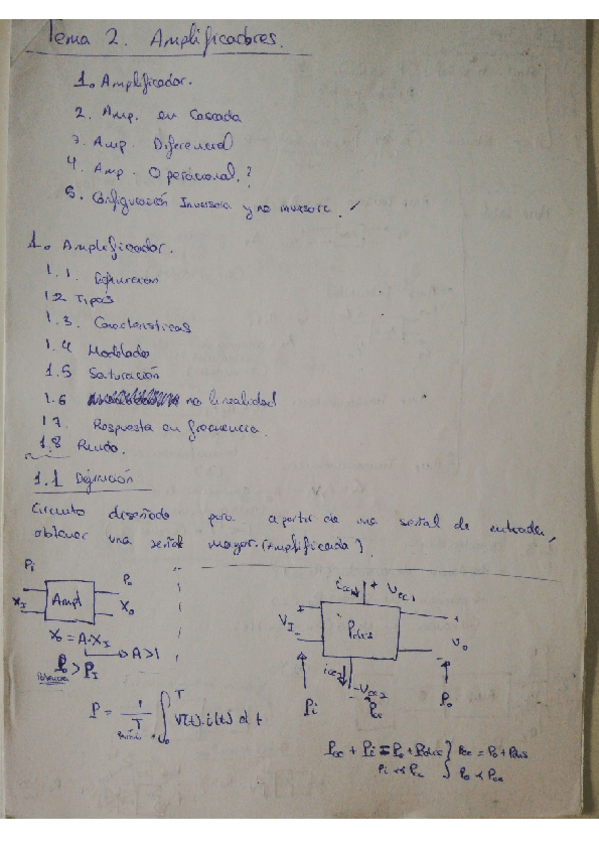 Tema 2. Amplificadores.
1. Amplificador.
2. Amp. en Cascada
3. Amp. Diferencial
4. Amp. Operacional.?
5. Configuración Inversora y no inversora.
1. Amplificador.
1.1. Definición
1.2 Tipos
1.3. Características
1.4 Modelado
1.5 Saturación
1.6 no linealidad
1.7. Respuesta en frecuencia.
1.8 Ruido.
1.1 Definición
Circuito diseñado para a partir de una señal de entrada,
obtener una señal mayor. (Amplificada)
Pi Po
XI Ampl Xo
Xo = A·XI
A>1
Po > PI
Potencia
P = 1/T ∫ v(t)·i(t) dt
Periodo
icc1 + Vcc1
VI Pdis vo
icc2 -Vcc2
Pi Pcc Po
Pcc + Pi = Po + Pdis } Pcc = Po + Pdis
Pi << Pcc } Po < Pcc